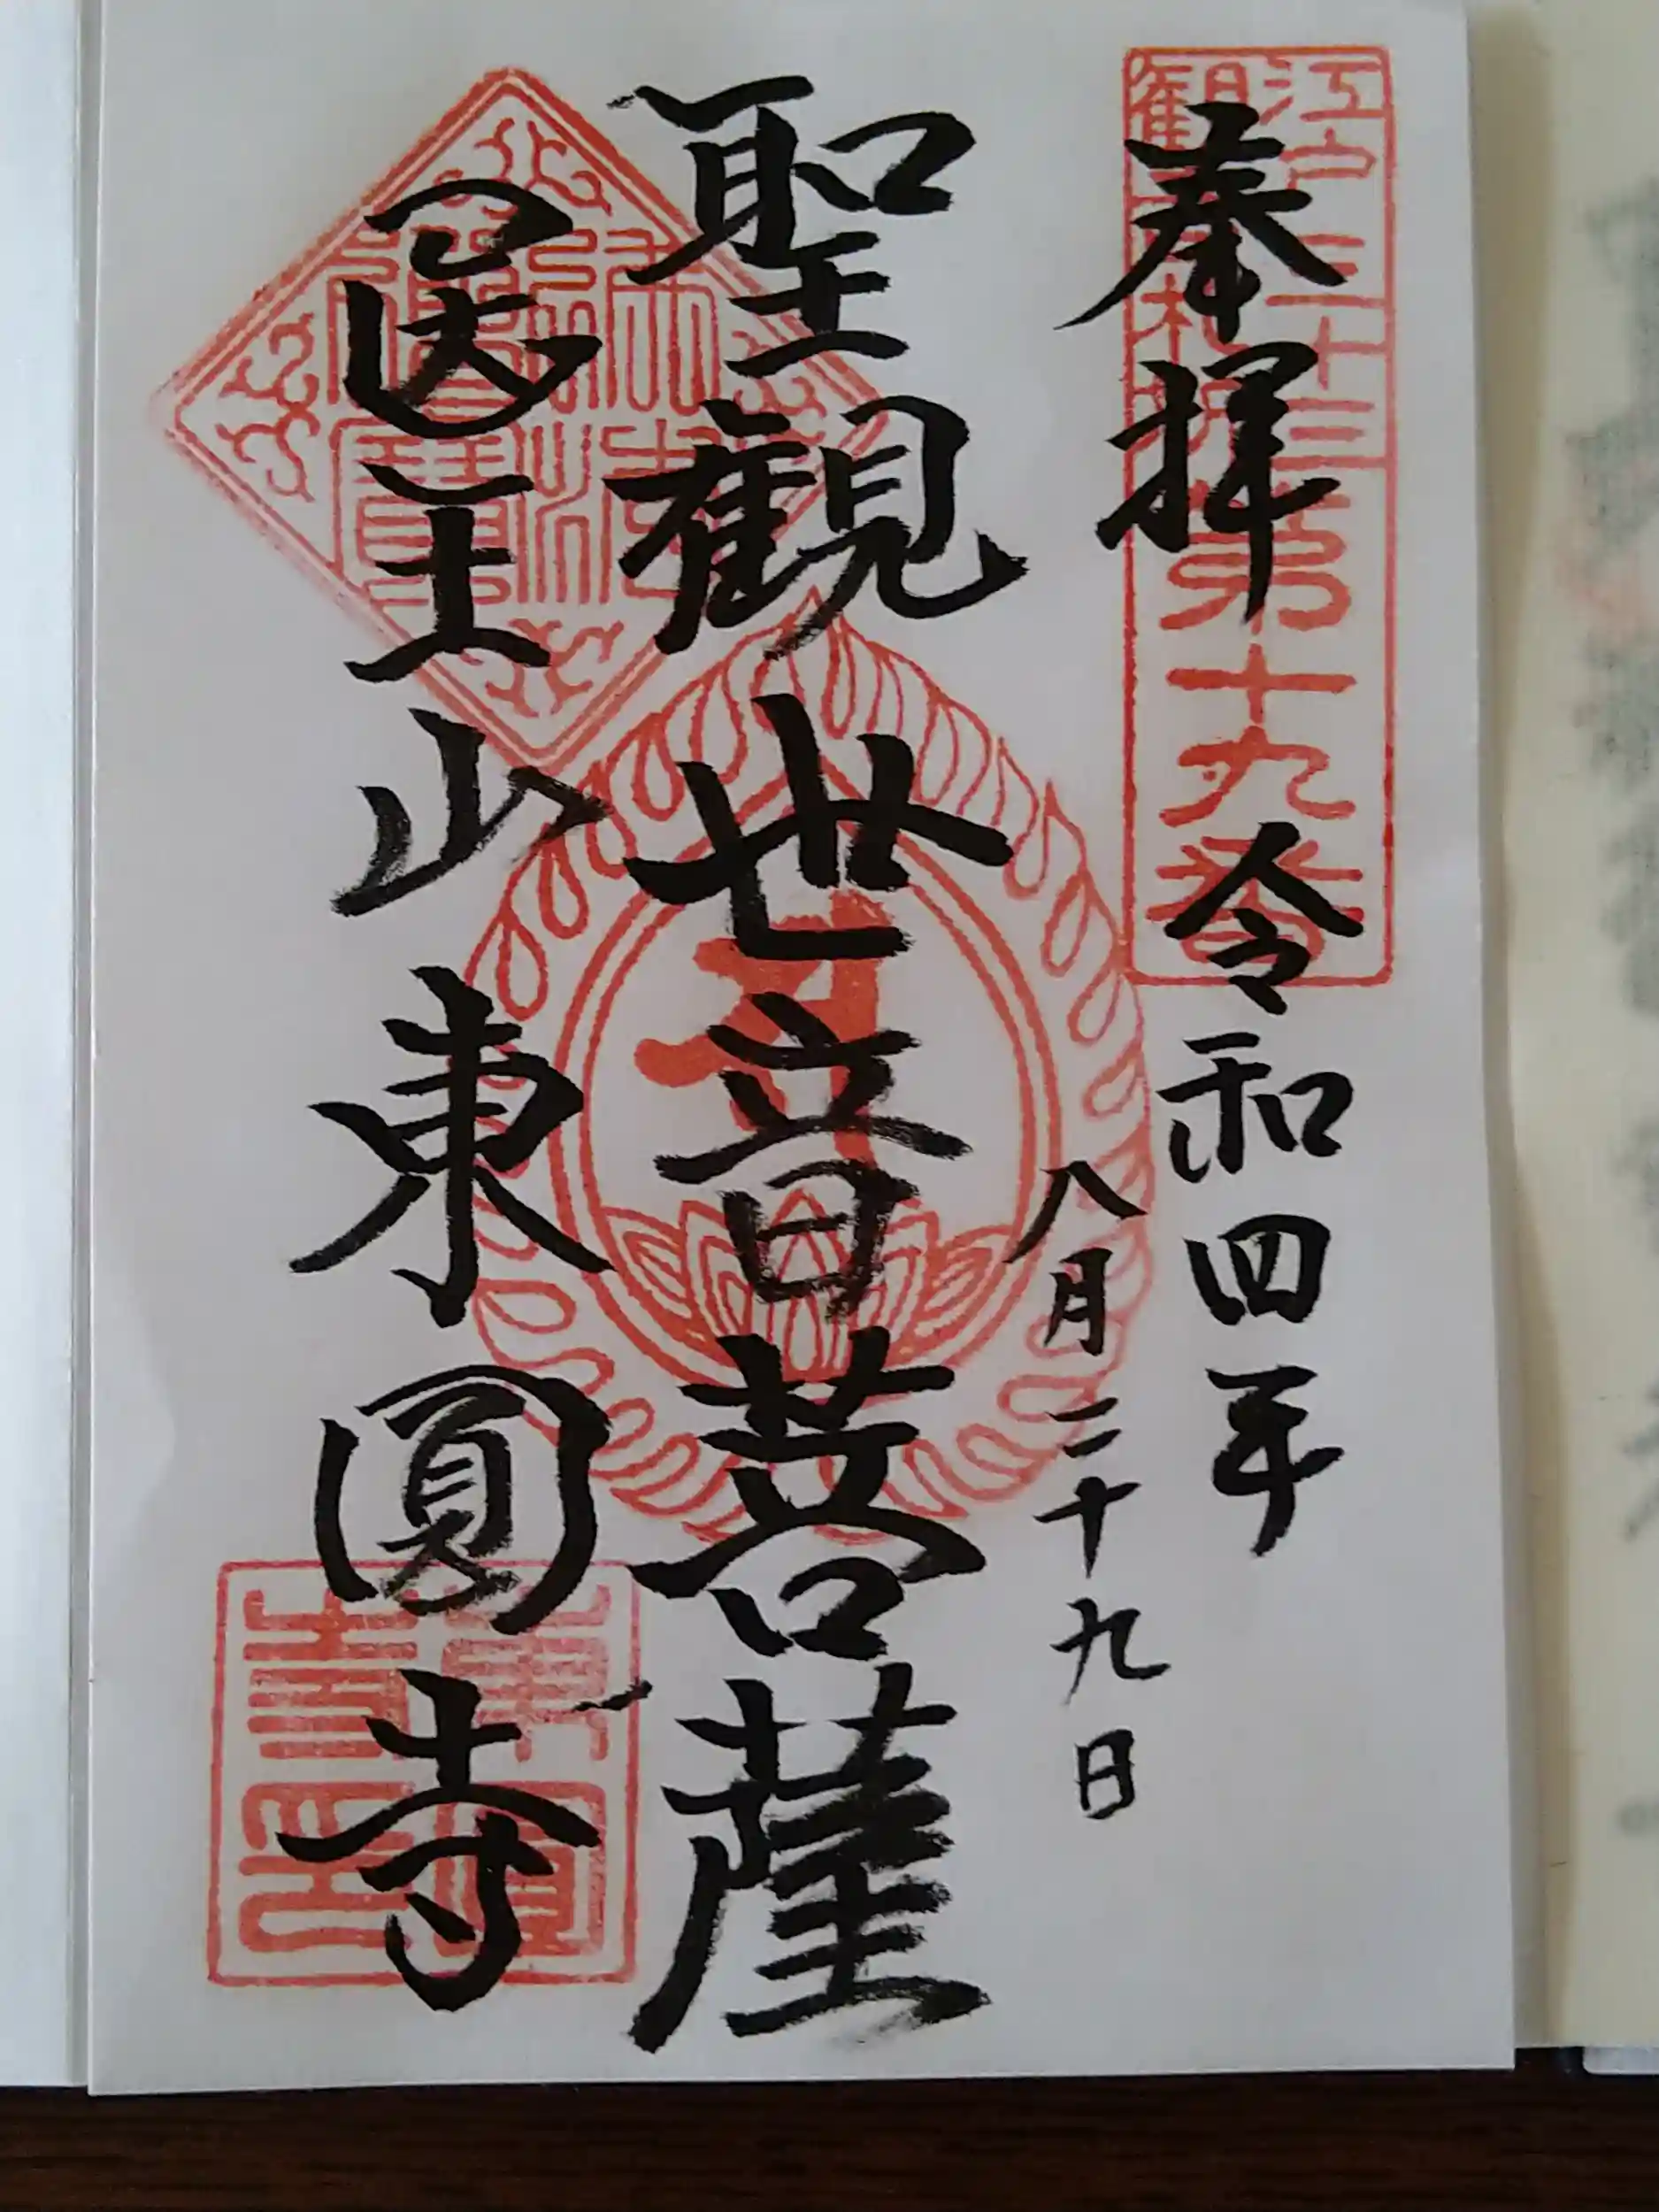 奉拝
令和四年
八月二十九日
聖觀世音菩薩
医王山東圓寺
江戸三十三
観音札所第十九番
佛法僧寳